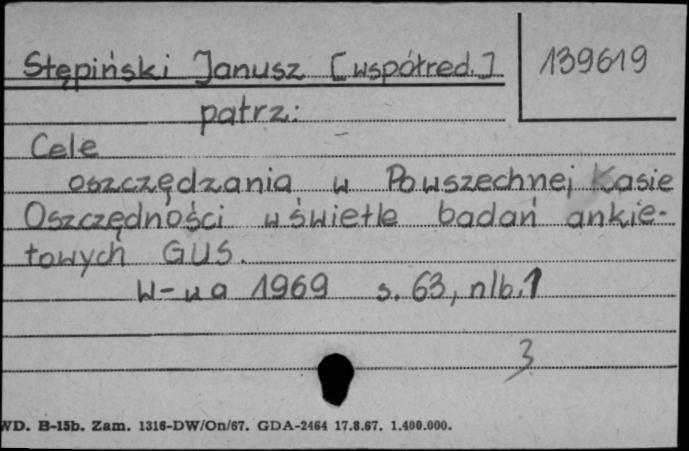 Stępiński Janusz [współred.] 139619
patrz:
Cele
oszczędzania w Powszechnej Kasie
Oszczędności w świetle badań ankie-
towych GUS.
W-wa 1969 s. 63, nlb. 1
3
WD. B-15b. Zam. 1316-DW/On/67. GDA-2464 17.8.67. 1.400.000.